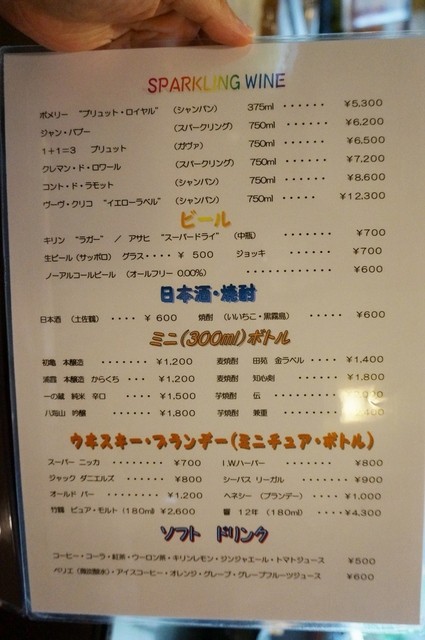 SPARKLING WINE
ポメリー "ブリュット・ロイヤル" （シャンパン） 375ml ・・・・・・ ¥5,300
ジャン・バブー （スパークリング） 750ml ・・・・・・ ¥6,200
1＋1＝3 ブリュット （カヴァ） 750ml ・・・・・・ ¥6,500
クレマン・ド・ロワール （スパークリング） 750ml ・・・・・・ ¥7,200
コント・ド・ラモット （シャンパン） 750ml ・・・・・ ¥8,600
ヴーヴ・クリコ "イエローラベル" （シャンパン） 750ml ・・・・・ ¥12,300
ビール
キリン "ラガー" / アサヒ "スーパードライ" （中瓶） ・・・・・・・ ¥700
生ビール（サッポロ） グラス・・・・ ¥ 500 ジョッキ ・・・・・・ ¥700
ノーアルコールビール （オールフリー 0.00%） ・・・・・・・・・・・・ ¥600
日本酒・焼酎
日本酒 （土佐鶴） ・・・・ ¥ 600 焼酎 （いいちこ・黒霧島） ・・・・・ ¥600
ミニ（300ml）ボトル
初亀 本醸造 ・・・・・・・ ¥1,200 麦焼酎 田苑 金ラベル ・・・・ ¥1,400
浦霞 本醸造 からくち ・・・ ¥1,200 麦焼酎 知心剣 ・・・・・・ ¥1,800
一の蔵 純米 辛口 ・・・・ ¥1,500 芋焼酎 伝
八海山 吟醸 ・・・・・ ¥1,800 芋焼酎 兼重
ウヰスキー・ブランデー（ミニチュア・ボトル）
スーパー ニッカ ・・・・・・・ ¥700 I.W.ハーパー ・・・・・・・・ ¥800
ジャック ダニエルズ ・・・・・ ¥800 シーバス リーガル ・・・・・・・ ¥900
オールド パー ・・・・・・・ ¥1,200 ヘネシー （ブランデー） ・・・・ ¥1,000
竹鶴 ピュア・モルト（180ml） ¥2,600 響 12年 （180ml） ・・・・ ¥4,300
ソフト ドリンク
コーヒー・コーラ・紅茶・ウーロン茶・キリンレモン・ジンジャエール・トマトジュース ¥500
ペリエ（発泡鉱水）・アイスコーヒー・オレンジ・グレープ・グレープフルーツジュース ¥600